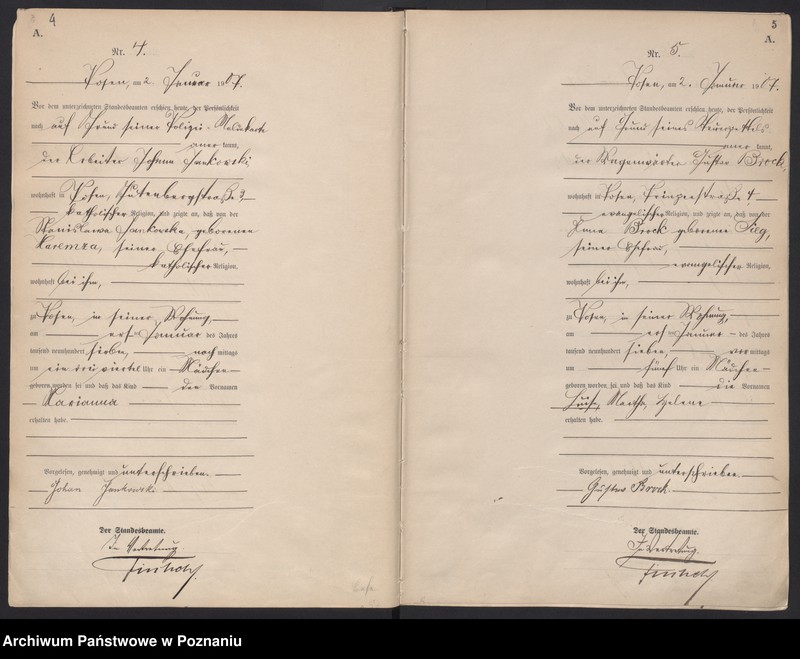 4
A.
Nr. 4.
Posen, am 2. Januar 1907.
Vor dem unterzeichneten Standesbeamten erschien heute, der Persönlichkeit
nach auf Grund seiner Polizei-Meldekarte
kannt,
der Arbeiter Johann Jankowski
wohnhaft in Posen, Gutenbergstraße
katholischer Religion, und zeigte an, daß von der
Stanislawa Jankowska, geborenen
Karemza, seiner Ehefrau,
katholischer Religion,
wohnhaft bei ihm,
zu Posen, in seiner Wohnung,
am ersten Januar des Jahres
tausend neunhundert sieben, nachmittags
um ein dreiviertel Uhr ein Mädchen
geboren worden sei und daß das Kind den Vornamen
Marianna
erhalten habe.
Vorgelesen, genehmigt und unterschrieben.
Johan Jankowski
Der Standesbeamte.
In Vertretung
5
A.
Nr. 5.
Posen, am 2. Januar 1907.
Vor dem unterzeichneten Standesbeamten erschien heute, der Persönlichkeit
nach auf Grund seines Steuerzettels
kannt,
der Wagenwärter Gustav Brock,
wohnhaft in Posen, Prinzenstraße 4
evangelischer Religion, und zeigte an, daß von der
Brock geborene Sieg,
seiner Ehefrau,
evangelischer Religion,
wohnhaft bei ihm,
zu Posen, in seiner Wohnung,
am ersten Januar des Jahres
tausend neunhundert sieben, vormittags
um fünf Uhr ein Mädchen
geboren worden sei und daß das Kind die Vornamen
Luise, Martha, Helene
erhalten habe.
Vorgelesen, genehmigt und unterschrieben.
Gustav Brock.
Der Standesbeamte.
In Vertretung.
Archiwum Państwowe w Poznaniu